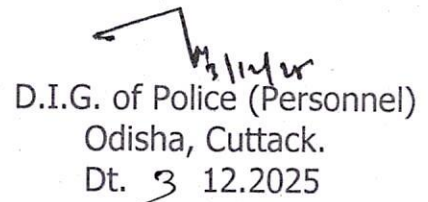 3/12/25
D.I.G. of Police (Personnel)
Odisha, Cuttack.
Dt. 3 12.2025